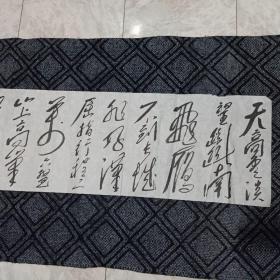 天高云淡
望斷南
飛雁
不到长城
非好漢
屈指行程二
萬六盘
山上高峰